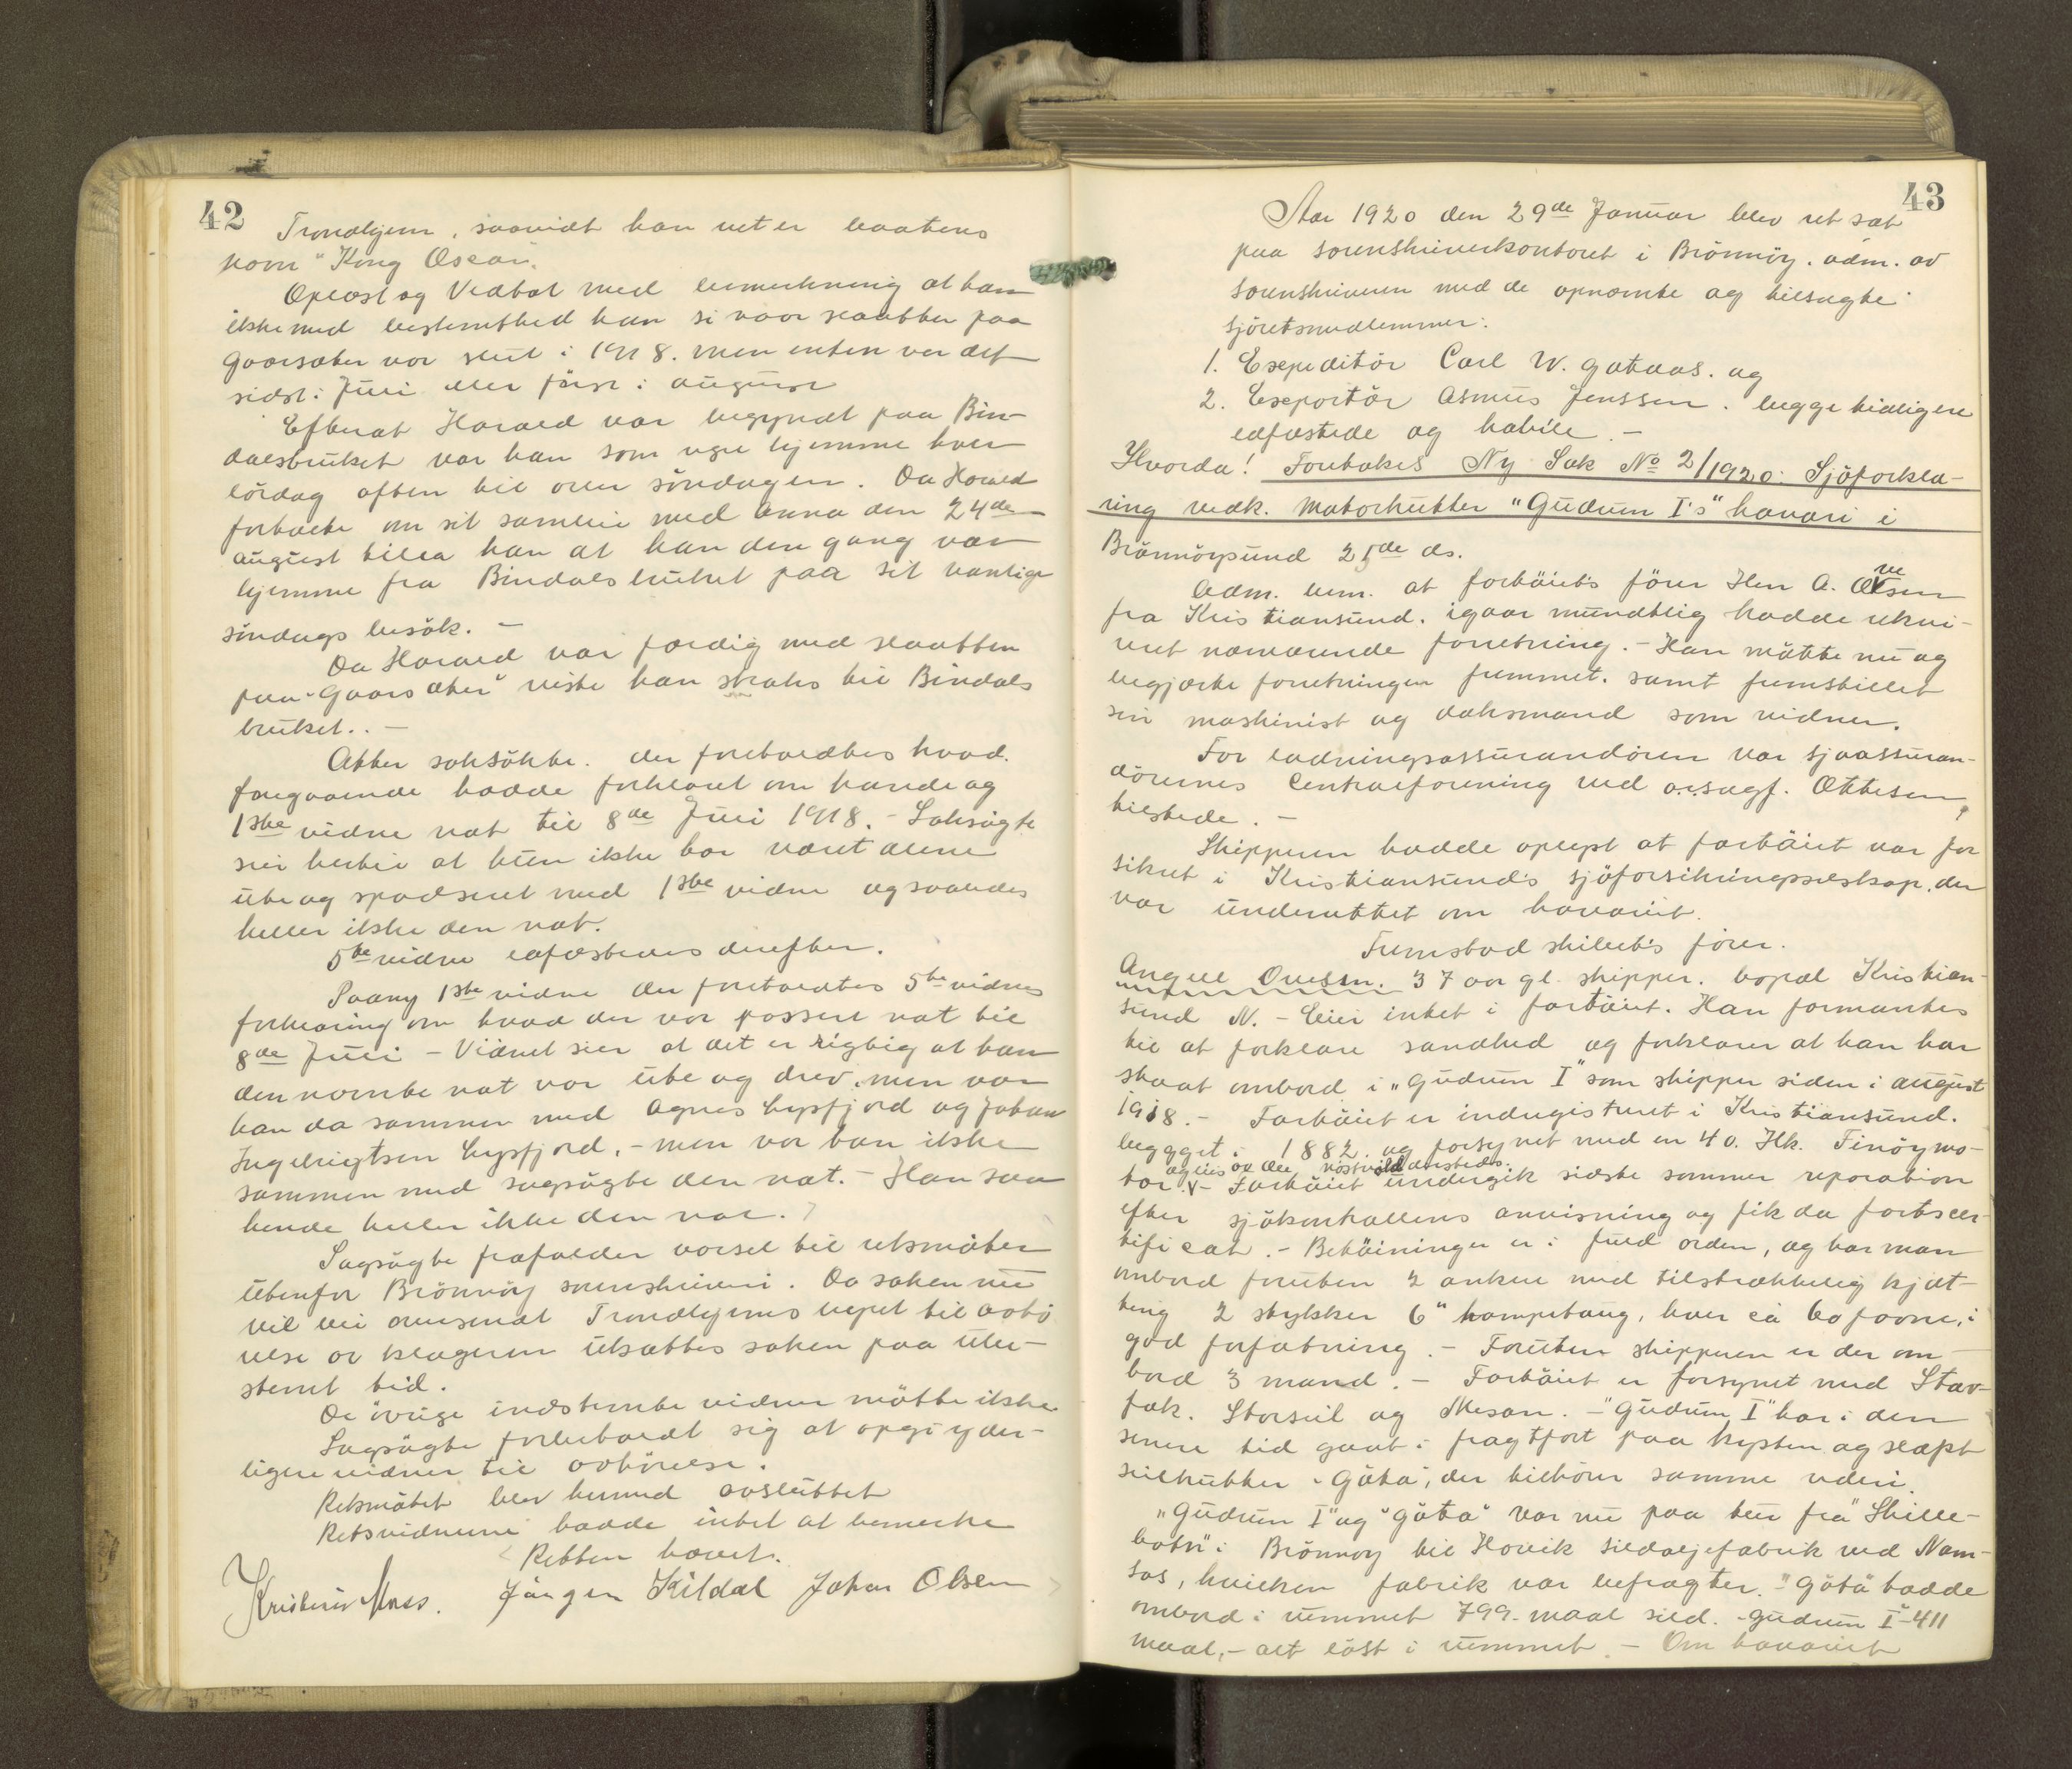 42
Trondhjem, saavidt han vet er baatens
navn "Kong Oscar".
Oplæst og vedtat med bemerkning at han
ikke med bestemthed kan si naar slaatten paa
Gaarsæter var slut i 1918. men enten var det
sidst i Juli eller först i august
Efterat Harald var begyndt paa Bin-
dalsbruket var han som regel hjemme hver
lördag aften til over söndagen. Da Harald
fortalte om sit samleie med Anna den 24de
august tilla han at han den gang var
hjemme fra Bindalsbruket paa sit vanlige
söndags besök. -
Da Harald var færdig med slaatten
paa "Gaarsæter" reiste han straks til Bindals
bruket. -
Atter saksökte. der foreholdtes hvad
foregaaende hadde forklaret om hende og
1ste vidne nat til 8de Juli 1918. - Saksögte
sier hertil at hun ikke har været alene
ute og spadseret med 1ste vidne og saaledes
heller ikke den nat.
5te vidne edfæstedes derefter.
Paany 1ste vidne der foreholdtes 5te vidnes
forklaring om hvad der var passert nat til
8de Juli - Vidnet sier at det er rigtig at han
den nævnte nat var ute og drev, men var
han da sammen med Agnes Lysfjord og Johan
Ingebrigtsen Lysfjord, - men var han ikke
sammen med sagsögte den nat. - Han saa
hende heller ikke den nat.
Sagsögte frafalder varsel til retsmöter
utenfor Brönnöy sorenskriveri. Da saken nu
vil bli oversendt Trondhjems byret til avhö
relse av klageren utsattes saken paa ube-
stemt tid.
De övrige indstevnte vidner mötte ikke
Sagsögte forbeholdt sig at opgi yder-
ligere vidner til avhörelse.
Retsmötet blev hermed avsluttet
Retsvidnerne hadde intet at bemerke
Retten hævet.
Jörgen Kildal Johan Olsen
43
Aar 1920 den 29de Januar blev ret sat
paa sorenskriverkontoret i Brönnöy. adm. av
sorenskriveren med de opnævnte og tilsagte
sjöretsmedlemmer:
1. Expeditör Carl W. Gataas. og
2. Exportör Asmus Jenssen. begge tidligere
edfæstede og habile. -
Hvorda! Foretokes Ny Sak No 2/1920: Sjöforkla-
ring vedk. Motorkutter "Gudrun I's" havari i
Brönnöysund 25de ds.
Adm. bem. at fartöiets förer Herr A. Ovesen
fra Kristiansund. igaar mundtlig hadde rekvi-
rert nærværende forretning. - Han mötte nu og
begjærte forretningen fremmet. samt fremstillet
sin maskinist og dæksmand som vidner.
For ladningsassurandören var Sjöassuran-
dörernes Centralforening ved o.r.sagf. Ottesen
tilstede. -
Skipperen hadde oplyst at fartöiet var for
sikret i Kristiansund's sjöforsikringsselskap, der
var underrettet om havariet.
Fremstod skibet's förer.
Angell Ovesen. 37 aar gl. skipper. bopæl Kristian-
sund N. - Eier intet i fartöiet. Han formantes
til at forklare sandhed og forklarer at han har
staat ombord i "Gudrun I" som skipper siden i august
1918. - Fartöiet er indregistreret i Kristiansund.
bygget i 1882. og forsynet med en 40 Hk. Finöymo-
og eies av dödsbo dersteds.
tor. - Fartöiet undergik sidste sommer reparation
efter sjökontrollens anvisning og fik da fartscer-
tificat. - Betöiningen er i fuld orden, og har man
ombord foruten 2 ankre med tilstrækkelig kjæt-
ting 2 stykker 6" hampetaug, hver ca 60 favne, i
god forfatning. - Foruten skipperen er der om-
bord 3 mand. - Fartöiet er forsynet med Stav-
fok. Storseil og Mesan. - "Gudrun I" har i den
senere tid gaat i fragtfart paa kysten og slæpt
seilkutter "Göta", der tilhörer samme rederi.
"Gudrun I" og "Göta" var nu paa tur fra "Skille-
botn" i Brönnöy til Hovik Sildoljefabrik ved Nam-
sos, hvilken fabrik var befragter. - "Göta" hadde
ombord i rummet 799. maal sild. "Gudrun I" 411
maal, - alt löst i rummet. - Om havariet